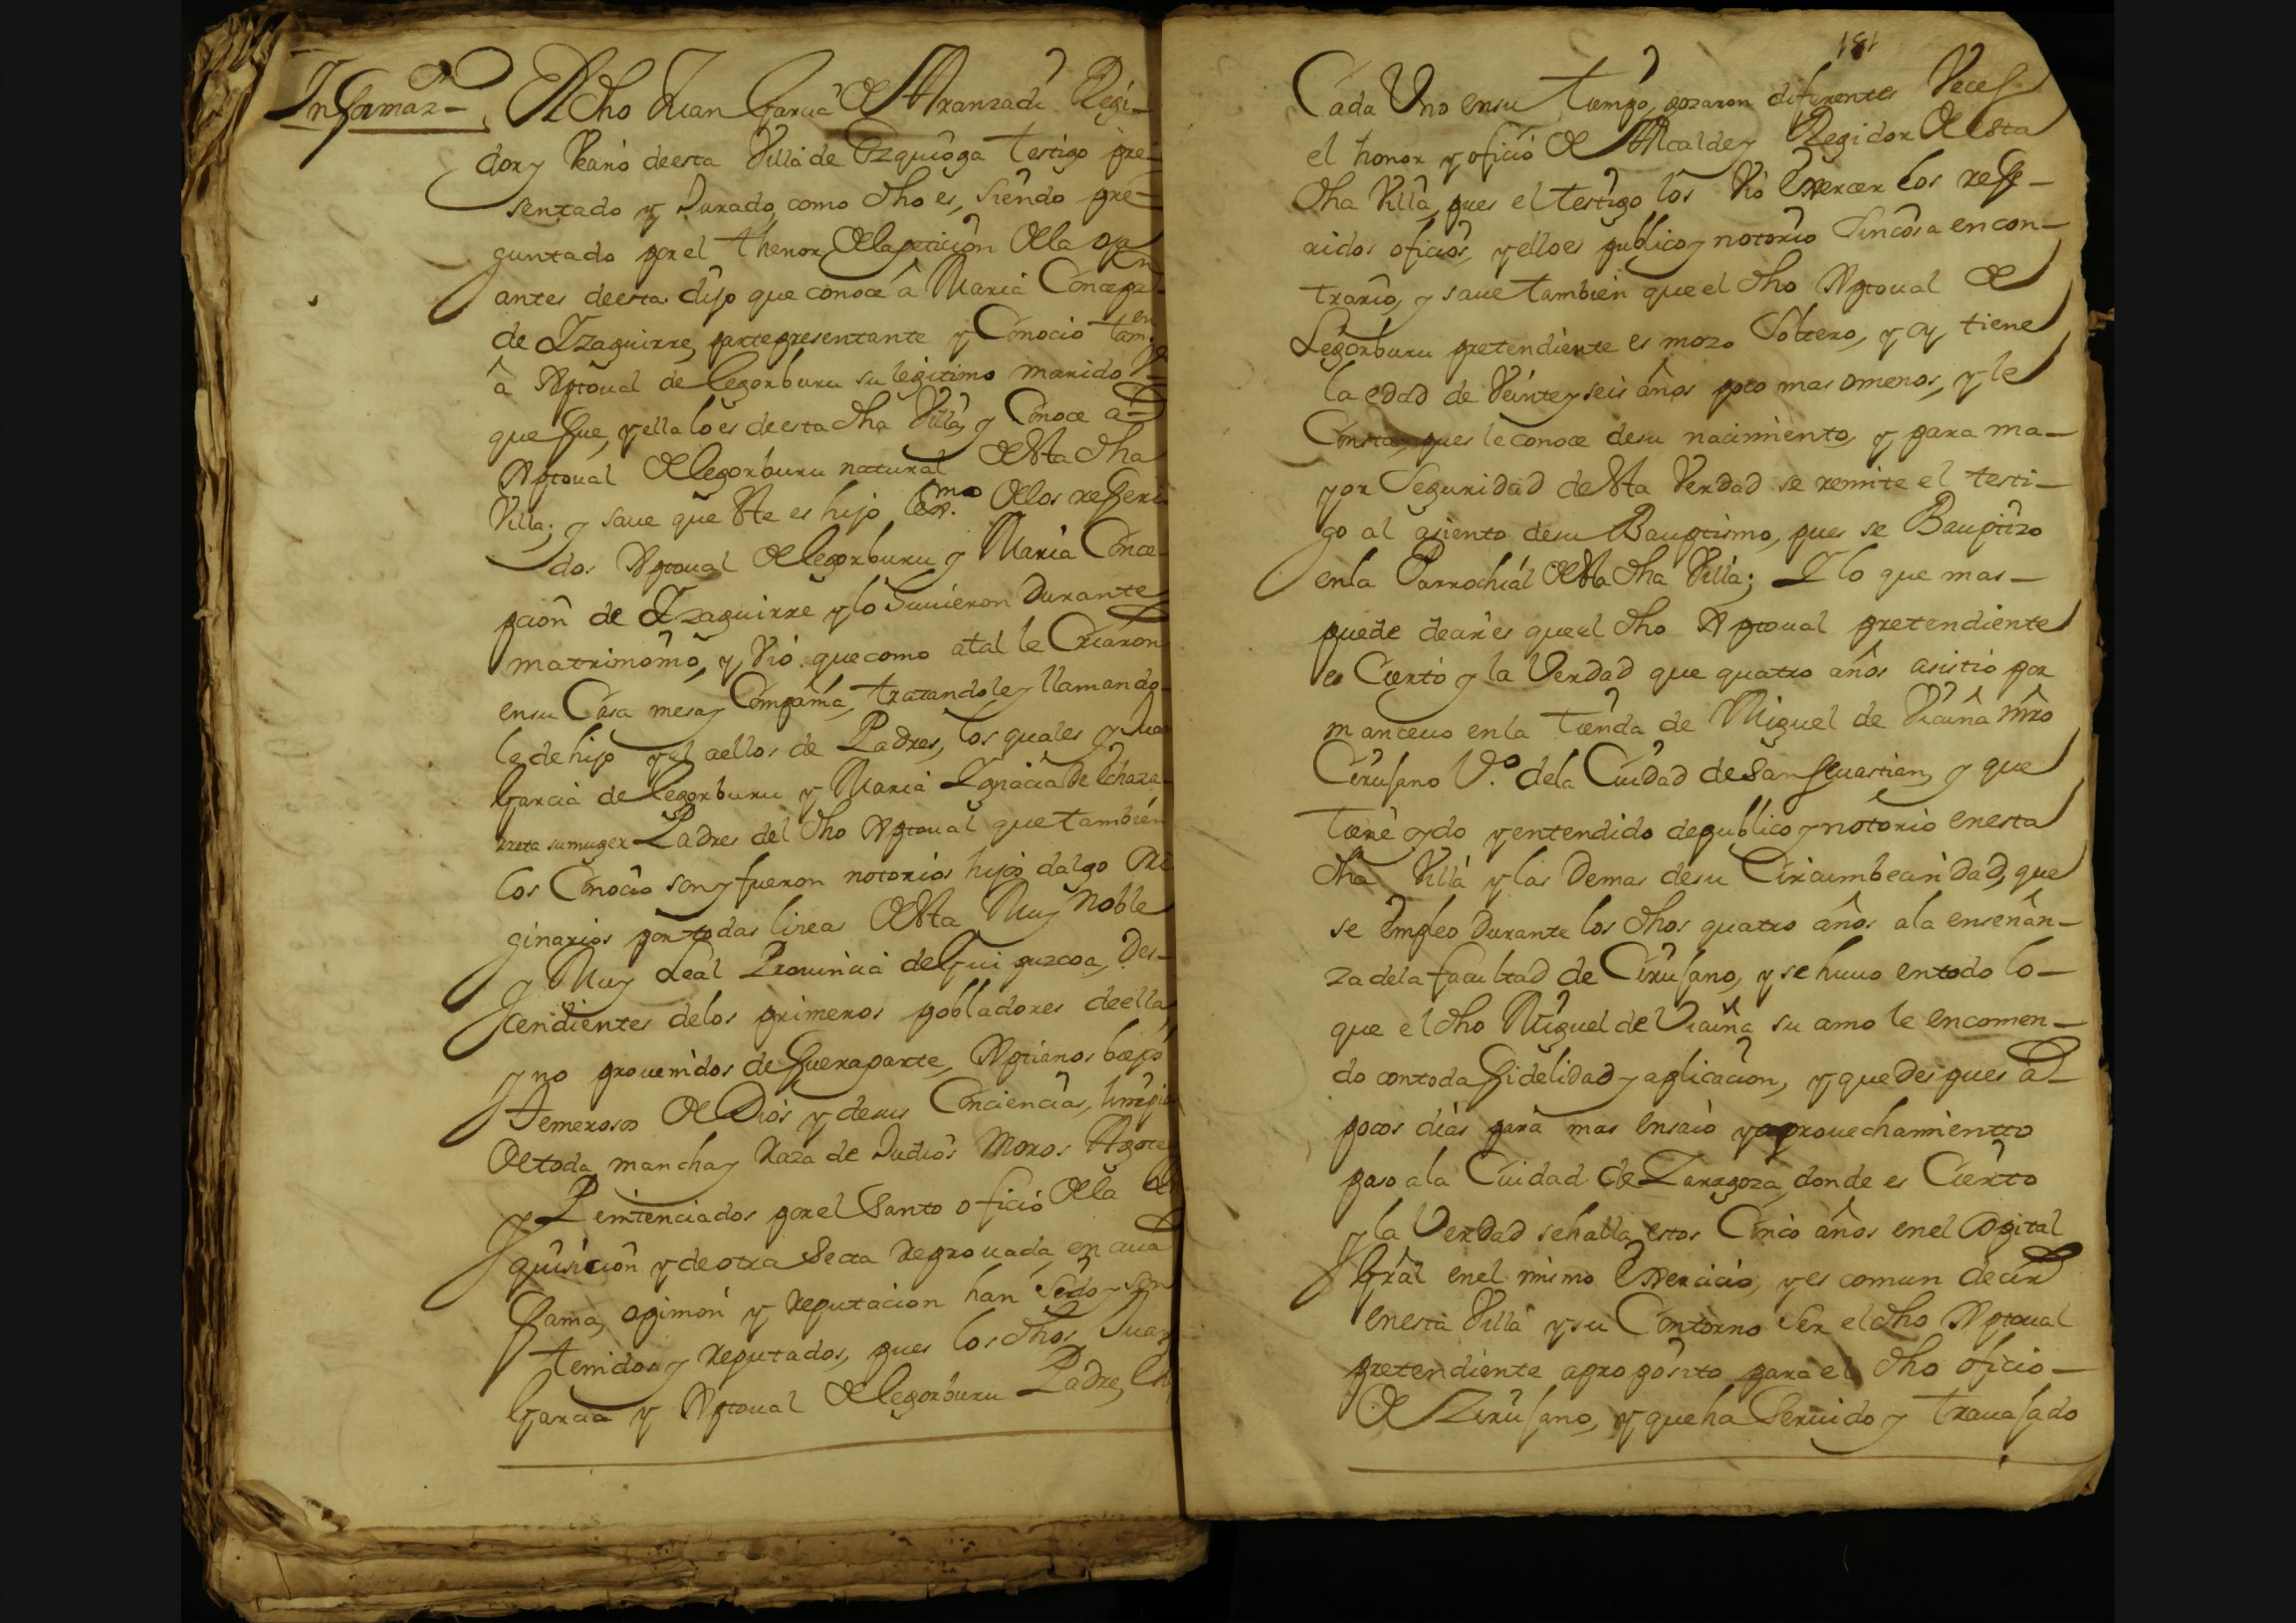 Informaz.on El dho Juan Garcia de Aranzadi Regi-
dor y Vezino de esta Villa de Ezquioga testigo pre-
sentado y Jurado, como dho es, siendo pre-
guntado por el thenor de la peticion de la oja
antes de esta dijo que conoce â Maria Concepz.on
de Yzaguirre, parte presentante y Conocio tam.en
â Xptoual de legorburu su legitimo marido
que fue, y ella lo es de esta dha Villa, y Conoce a
Xptoual de legorburu natural de esta dha
Villa; y saue que este es hijo leg.mo de los referi-
dos Xptoual de legorburu y Maria Conce-
pcion de Yzaguirre y lo huuieron Durante
matrimonio, y Vió que como atal le Criaron
en su Casa mesa y Compañia, tratandole y llamando-
le de hijo y el aellos de Padres, los quales y Juan
Garcia de legorburu y Maria Ygnacia de Echaza-
rreta su muger Padres del dho Xptoual que tambien
los Conocio son y fueron notorios hijos dalgo Ori-
ginarios por todas lineas de esta Muy Noble
y Muy Leal Prouincia de Guipuzcoa, Des-
cendientes delos primeros pobladores de ella
y no prouenidos de fuera parte, Xptianos biejos
temerosos de Dios y desus Conciencias, limpios
de toda mancha y Raza de Judios Moros Agotes
y Penitenciados por el Santo oficio de la In-
quisicion y de otra Secta Reprouada, en cuia
fama, opinion y Reputacion han Sido y son
tenidos y Reputados, pues los dhos Juan
Garcia y Xptoual de legorburu Padre, e hijo
181
Cada Uno en su tiempo, gozaron diferentes Veces
el honor y oficio de Alcalde y Regidor de esta
dha Villa, pues el testigo los Vio Exercer los refe-
ridos oficios, y ello es publico y notorio Sin cosa en con-
trario, y saue tambien que el dho Xptoual de
Legorburu pretendiente es mozo Soltero, y oy tiene
la edad de Veinte y seis años poco mas omenos, y le
Consta, pues le conoce desu nacimiento, y para ma-
yor Seguridad de esta Verdad se remite el testi-
go al asiento desu Bauptismo, pues se Bauptizo
enla Parrochial de esta dha Villa; Y lo que mas-
puede decir es que el dho Xptoual pretendiente
es Cierto y la Verdad que quatro años asistio por
manceuo enla tienda de Miguel de Vicuña mro
Cirujano V.o dela Ciudad de San Seuastian, y que
tiene oydo y entendido de publico y notorio enesta
dha Villa y las Demas desu Circumbecindad, que
se Empleo Durante los dhos quatro años ala enseñan-
za dela facultad de Cirujano, y se huuo entodo lo-
que el dho Miguel de Vicuña su amo le encomen-
do con toda fidelidad y aplicacion, y que Despues a
pocos dias para mas Ensaio y aprouechamientto
paso ala Ciudad de Zaragoza, donde es Cierto
y la Verdad se halla estos Cinco años enel Ospital
Gral enel mismo Exercicio, y es comun decir
enesta Villa y su Contorno Ser el dho Xptoual
pretendiente aproposito para el dho oficio-
de Zirujano, y que ha Seruido y trauajado